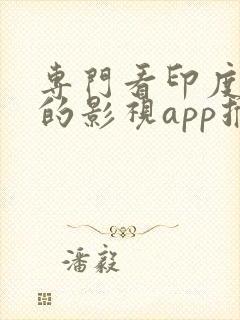 專門看印度
的影視app推
潘毅